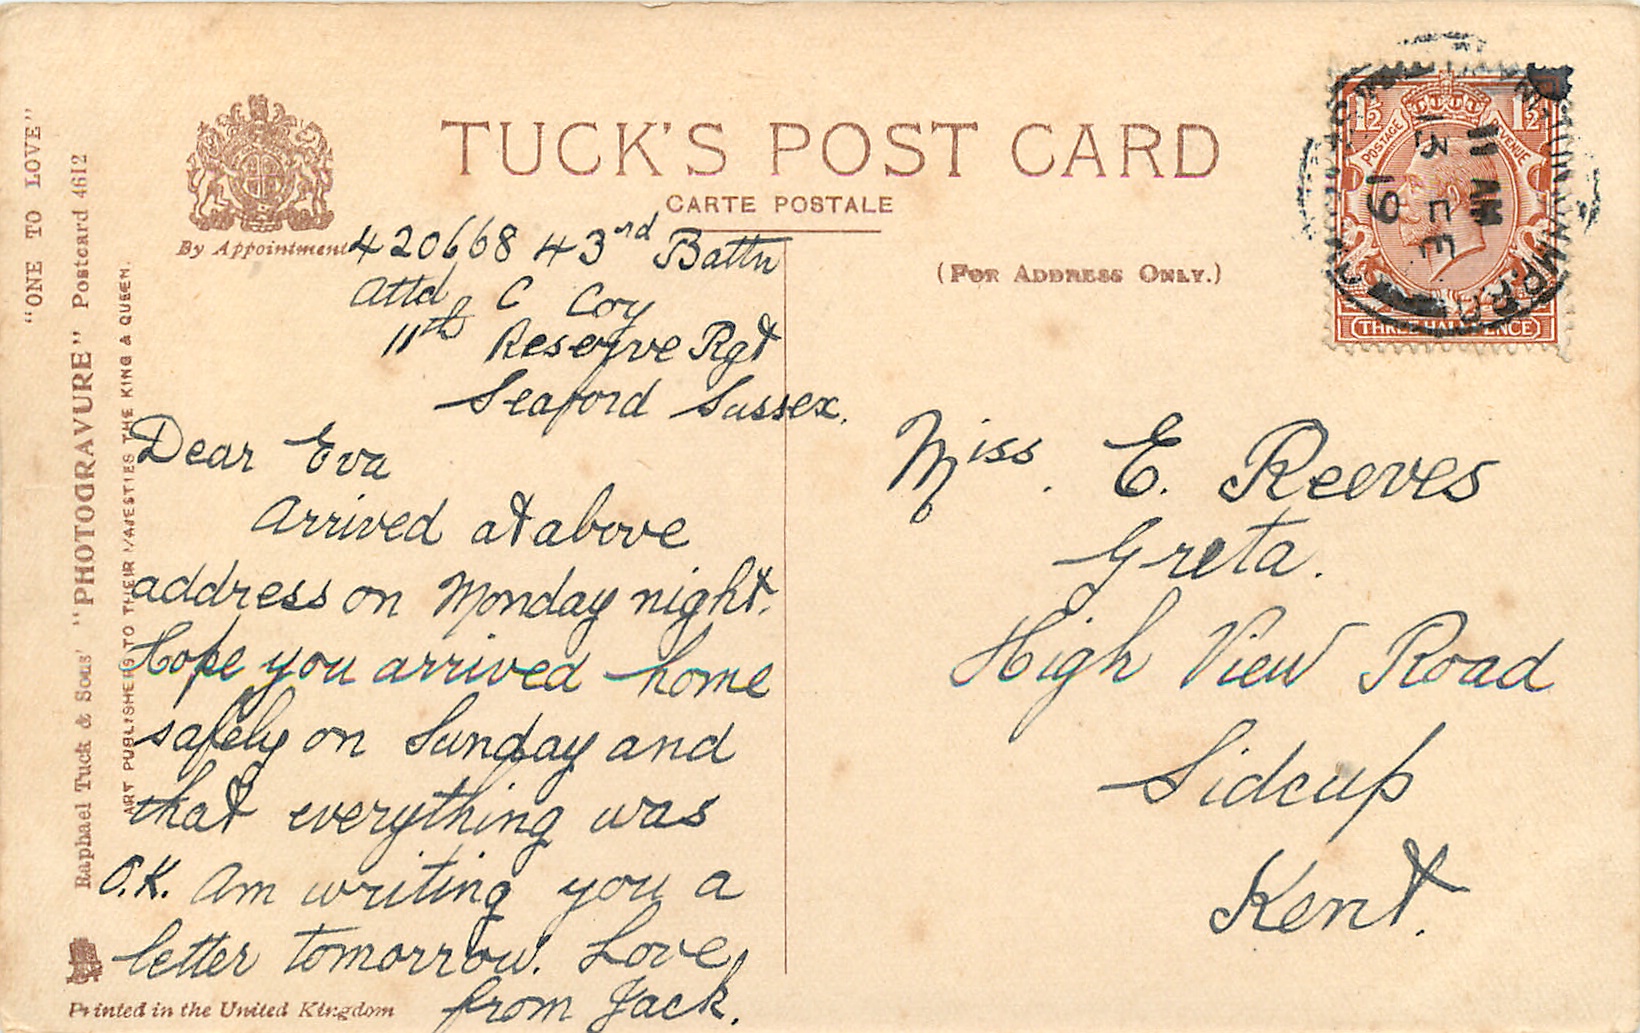 TUCK'S POST CARD
CARTE POSTALE
By Appointment
(FOR ADDRESS ONLY.)
"ONE TO LOVE"
Raphael Tuck & Sons' "PHOTOGRAVURE" Postcard 4612
ART PUBLISHERS TO THEIR MAJESTIES THE KING & QUEEN.
420668 43rd Battn
Attd C Coy
11th Reserve Rgt
Seaford Sussex.
Dear Eva
Arrived at above
address on Monday night.
Hope you arrived home
safely on Sunday and
that everything was
O.K. Am writing you a
letter tomorrow. Love
from Jack.
Printed in the United Kingdom
1½ 1½
POSTAGE REVENUE
THREE HALFPENCE
11 AM
13 FE
19
Miss. E. Reeves
Greta.
High View Road
Sidcup
Kent.